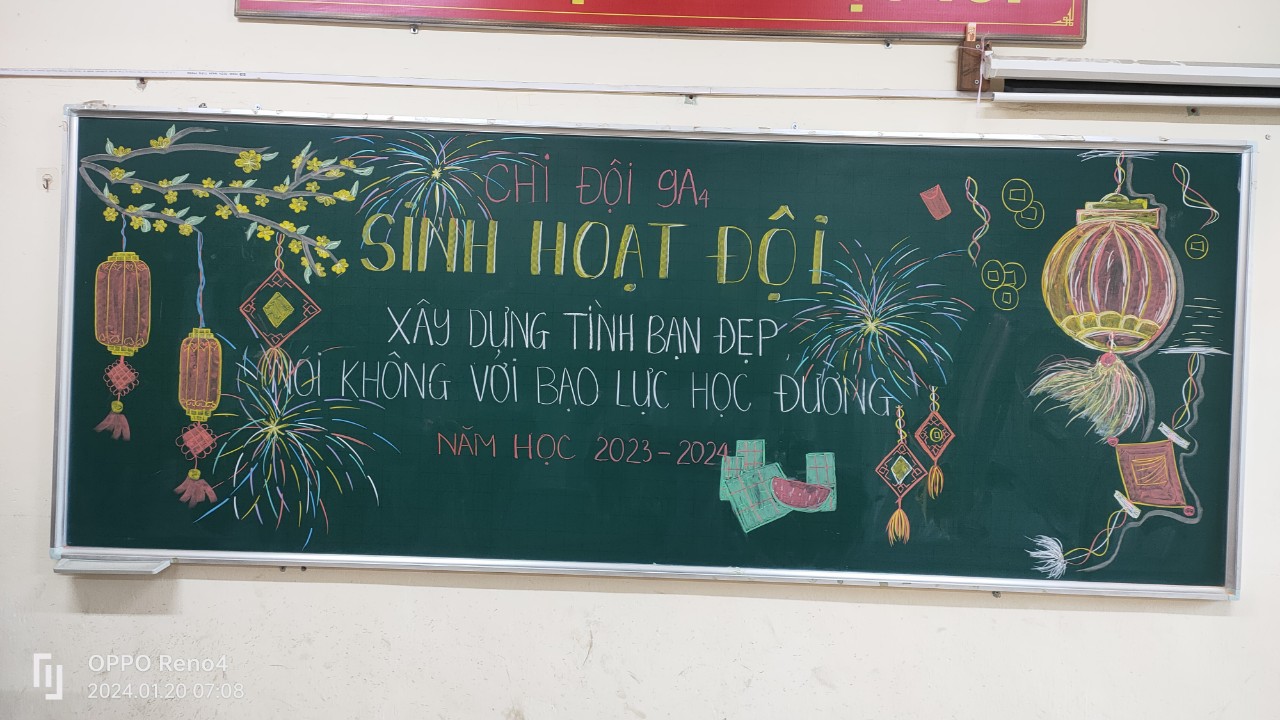 CHI ĐỘI 9A4
SINH HOẠT ĐỘI
XÂY DỰNG TÌNH BẠN ĐẸP,
NÓI KHÔNG VỚI BẠO LỰC HỌC ĐƯỜNG.
NĂM HỌC 2023-2024
OPPO Reno4
2024.01.20 07:08